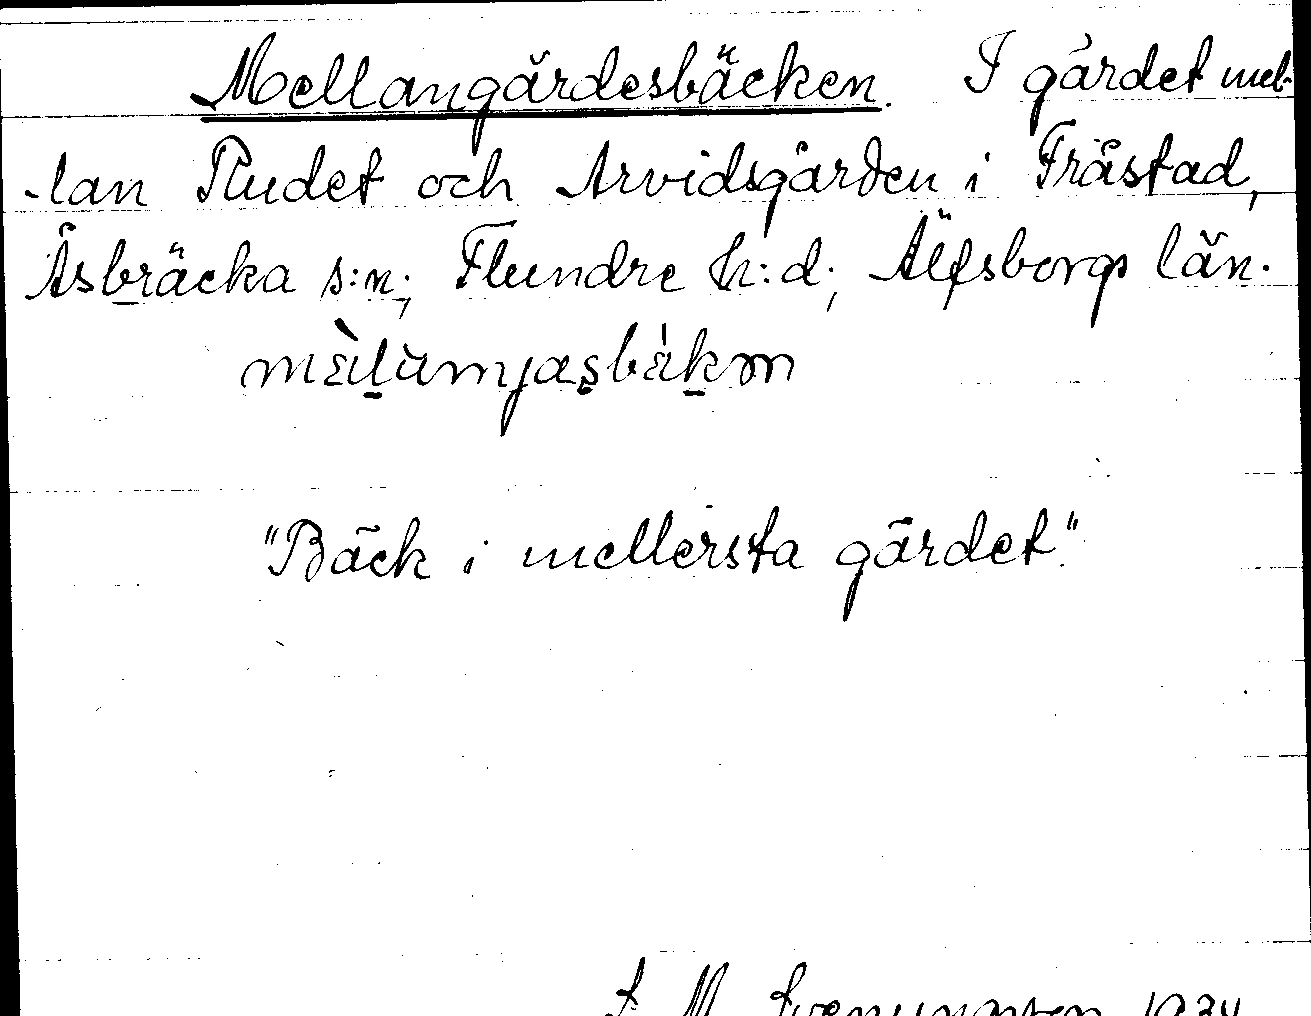 Mellangärdesbäcken. I gärdet mel-
-lan Rudet och Arvidsgården i Fråstad,
Åsbräcka s:n; Flundre h:d; Älfsborgs län.
"Bäck i mellersta gärdet."
1934